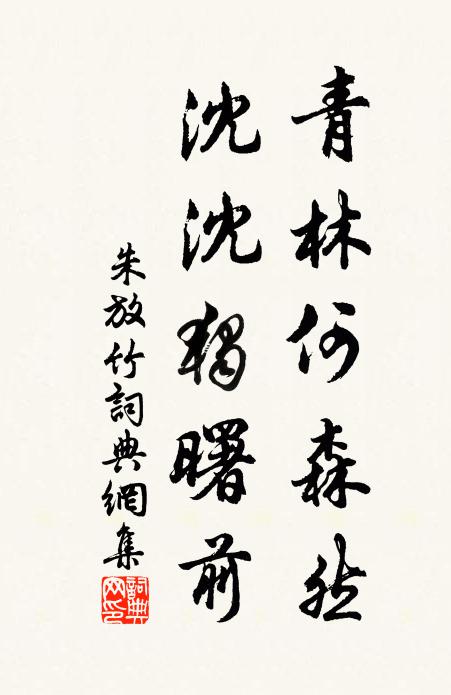 青林何森然
沈沈獨曙前
朱放竹詞典網集
詞典網印